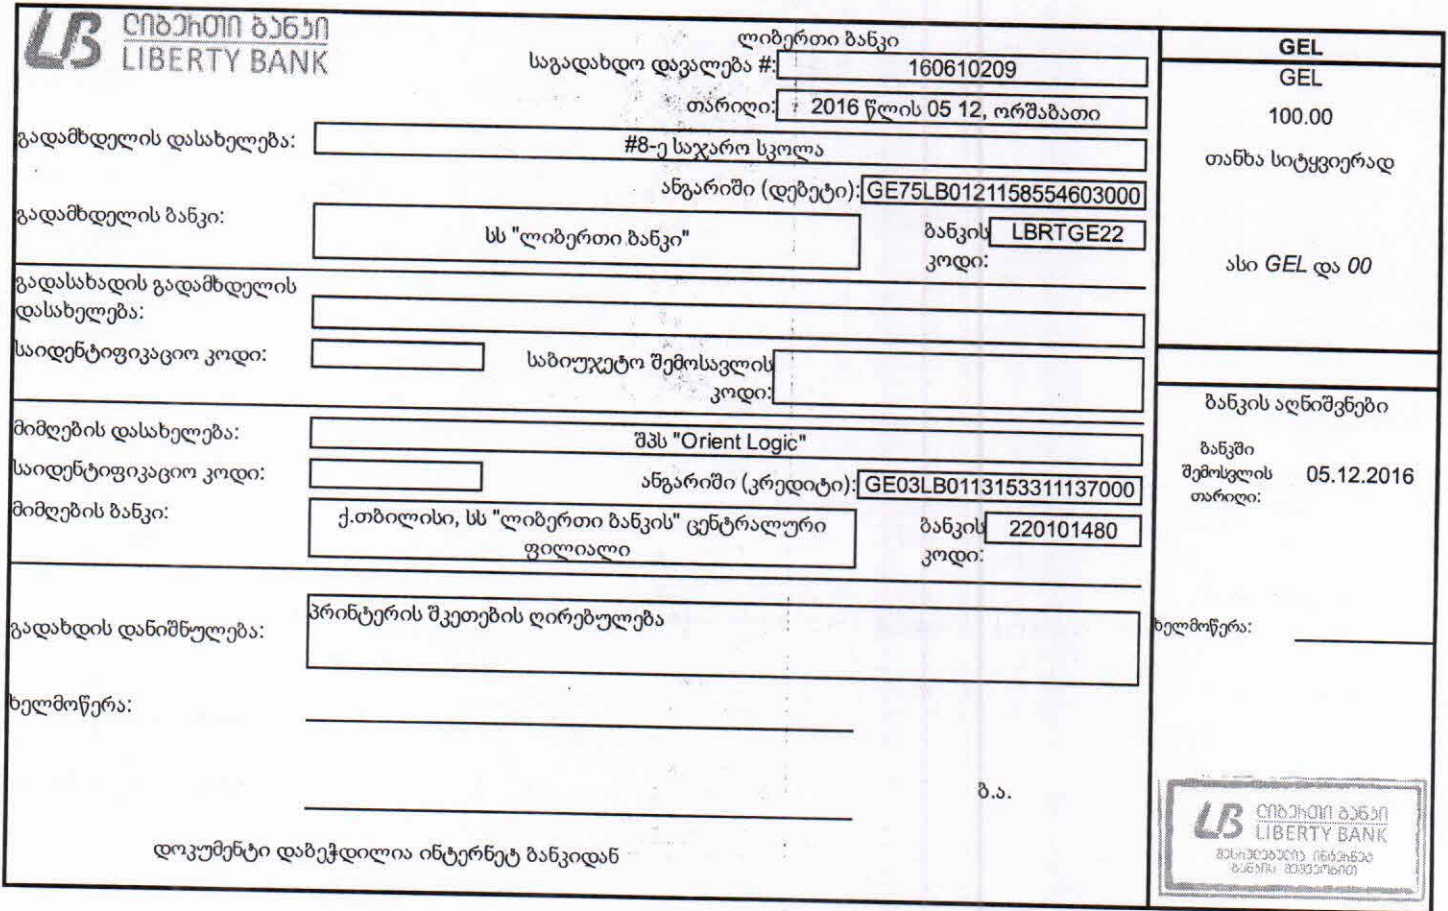 ლიბერთი ბანკი
LIBERTY BANK
ლიბერთი ბანკი
საგადახდო დავალება #: 160610209
თარიღი: 2016 წლის 05 12, ორშაბათი
გადამხდელის დასახელება: #8-ე საჯარო სკოლა
ანგარიში (დებეტი): GE75LB0121158554603000
გადამხდელის ბანკი: სს "ლიბერთი ბანკი" ბანკის კოდი: LBRTGE22
გადასახადის გადამხდელის
დასახელება:
საიდენტიფიკაციო კოდი: საბიუჯეტო შემოსავლის
კოდი:
მიმღების დასახელება: შპს "Orient Logic"
საიდენტიფიკაციო კოდი: ანგარიში (კრედიტი): GE03LB0113153311137000
მიმღების ბანკი: ქ.თბილისი, სს "ლიბერთი ბანკის" ცენტრალური
ფილიალი
ბანკის კოდი: 220101480
გადახდის დანიშნულება: პრინტერის შკეთების ღირებულება
ხელმოწერა:
ბ.ა.
დოკუმენტი დაბეჭდილია ინტერნეტ ბანკიდან
GEL
GEL
100.00
თანხა სიტყვიერად
ასი GEL და 00
ბანკის აღნიშვნები
ბანკში
შემოსვლის
თარიღი: 05.12.2016
ხელმოწერა:
ლიბერთი ბანკი
LIBERTY BANK
შესრულებულია ინტერნეტ
ბანკის მეშვეობით